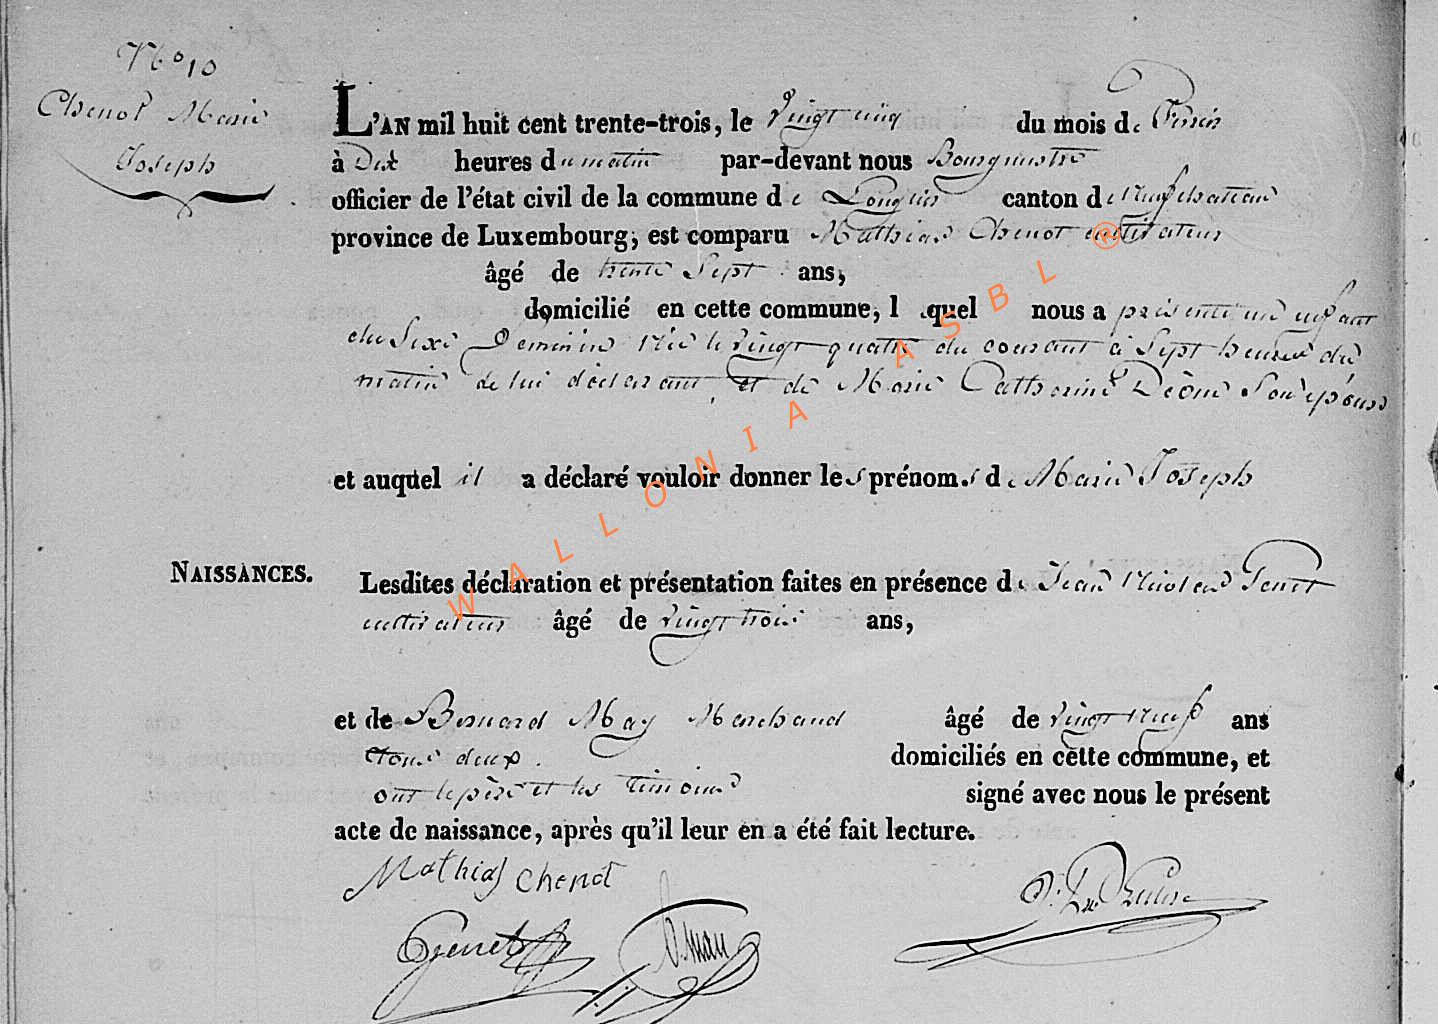 N° 10
Chenot Marie
Joseph
L'AN mil huit cent trente-trois, le Vingt cinq du mois de
à Dix heures du matin par-devant nous Bourgmestre
officier de l'état civil de la commune de Longlier canton de Neufchateau
province de Luxembourg, est comparu Mathias Chenot cultivateur
âgé de trente Sept ans,
domicilié en cette commune, l quel nous a présenté un enfant
du Sexe Feminin née le vingt quatre du courant à Sept heures du
matin de lui déclarant, et de Marie Catherine Son épouse
et auquel il a déclaré vouloir donner les prénoms de Marie Joseph
NAISSANCES.
Lesdites déclaration et présentation faites en présence de Jean Nicolas Genet
cultivateur âgé de vingt trois ans,
et de Bernard May Marchand âgé de vingt neuf ans
tous deux domiciliés en cette commune, et
ont le père et les temoins signé avec nous le présent
acte de naissance, après qu'il leur en a été fait lecture.
Mathias Chenot
Genet
WALLONIA ASBL ®